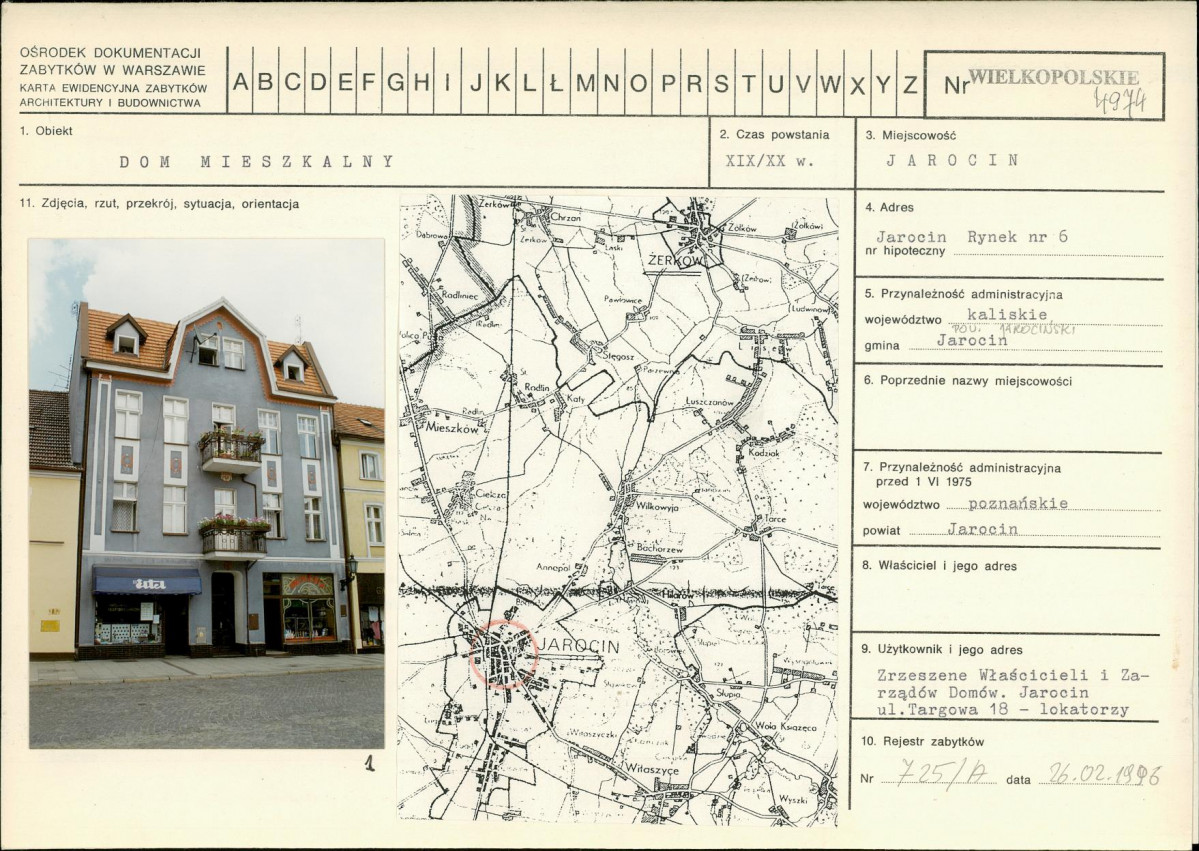 OŚRODEK DOKUMENTACJI
ZABYTKÓW W WARSZAWIE
KARTA EWIDENCYJNA ZABYTKÓW
ARCHITEKTURY I BUDOWNICTWA
A B C D E F G H I J K L Ł M N O P R S T U V W X Y Z
Nr WIELKOPOLSKIE
4974
1. Obiekt
DOM MIESZKALNY
2. Czas powstania
XIX/XX w.
3. Miejscowość
JAROCIN
11. Zdjęcia, rzut, przekrój, sytuacja, orientacja
4. Adres
Jarocin Rynek nr 6
nr hipoteczny
5. Przynależność administracyjna
województwo kaliskie
POW. JAROCIŃSKI
gmina Jarocin
6. Poprzednie nazwy miejscowości
7. Przynależność administracyjna
przed 1 VI 1975
województwo poznańskie
powiat Jarocin
8. Właściciel i jego adres
9. Użytkownik i jego adres
Zrzeszene Właścicieli i Za-
rządów Domów. Jarocin
ul.Targowa 18 - lokatorzy
10. Rejestr zabytków
Nr 725/A data 26.02.1996
1
Żerków
Chrzan
Żerków
Laski
Dąbrowa
Żółków
Żółków
ŻERKÓW
(Żerków)
Radliniec
Pawłowice
Ludwinów
Stęgosz
Parzewnia
Radlin
Kąty
Radlin
Mieszków
Luszczanów
Kadziak
Cielcza
Wilkowyja
Tarce
Bachorzew
Annopol
JAROCIN
Słupia
Wola Książęca
Witaszyczki
Witaszyce
Wyszki